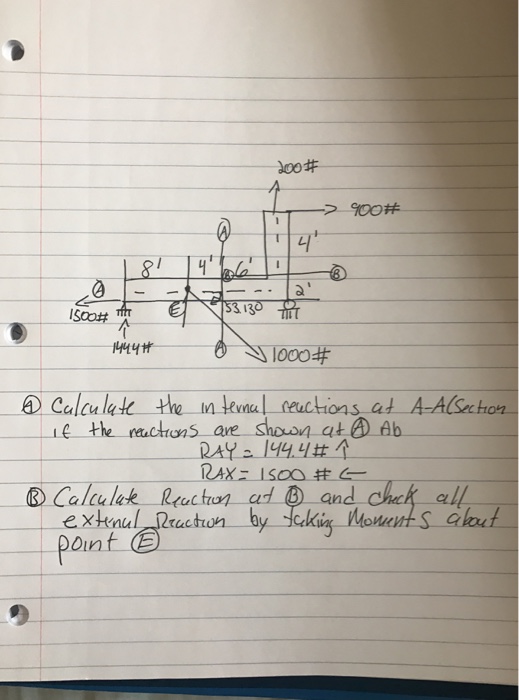 200#
900#
Ⓐ
4'
8' 4' 6' Ⓑ
Ⓐ 2'
1500# Ⓔ 53.130
1444# Ⓐ 1000#
Ⓐ Calculate the internal reactions at A-A(Section
if the reactions are shown at Ⓐ Ab
RAY = 144.4# ↑
RAX = 1500 # ←
Ⓑ Calculate Reaction at Ⓑ and check all
external Reaction by taking Moments about
point Ⓔ